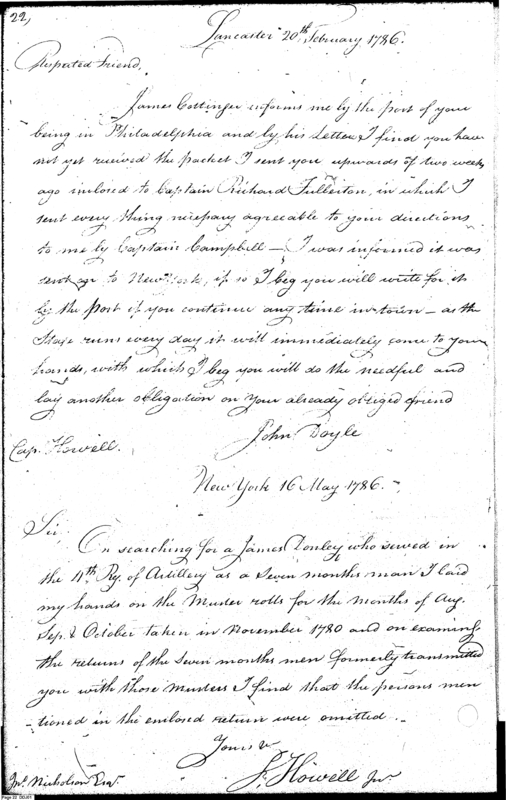 22,
Lancaster 20th February 1786.
Respected Friend,
James Cottinger informs me by the post of your
being in Philadelphia and by his Letter I find you have
not yet recieved the packet I sent you upwards of two weeks
ago inclosed to Captain Richard Fullerton, in which I
sent every thing necessary agreeable to your directions
to me by Captain Campbell — I was informed it was
sent on to New York, if so I beg you will write for it
by the Post if you continue any time in town — as the
Stage runs every day it will immediately come to your
hands, with which I beg you will do the needful and
lay another obligation on your already obliged friend
John Doyle
Cap. Howell.
New York 16 May 1786.
Sir,
On searching for a James Donley who served in
the 4th Rg. of Artillery as a Seven months man I laid
my hands on the Muster rolls for the months of Aug.
Sep. & October taken in November 1780 and on examining
the returns of the Seven months men formerly transmitted
you with those Musters I find that the persons men
-tioned in the enclosed return were omitted. –
Yours &
J. Howell Jnr
Jno. Nicholson Esqr
Page 22